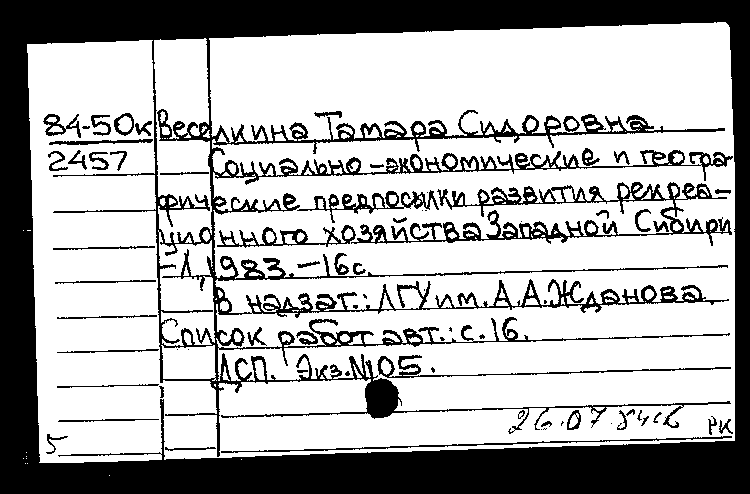 84-50к Веселкина, Тамара Сидоровна.
2457 Социально-экономические и геогра-
фические предпосылки развития рекреа-
ционного хозяйства Западной Сибири
-Л., 1983.-16с.
В надзаг.: ЛГУ им. А.А.Жданова.
Список работ авт.: с.16.
ДСП. Экз.№105.
26.07.84
5 РК